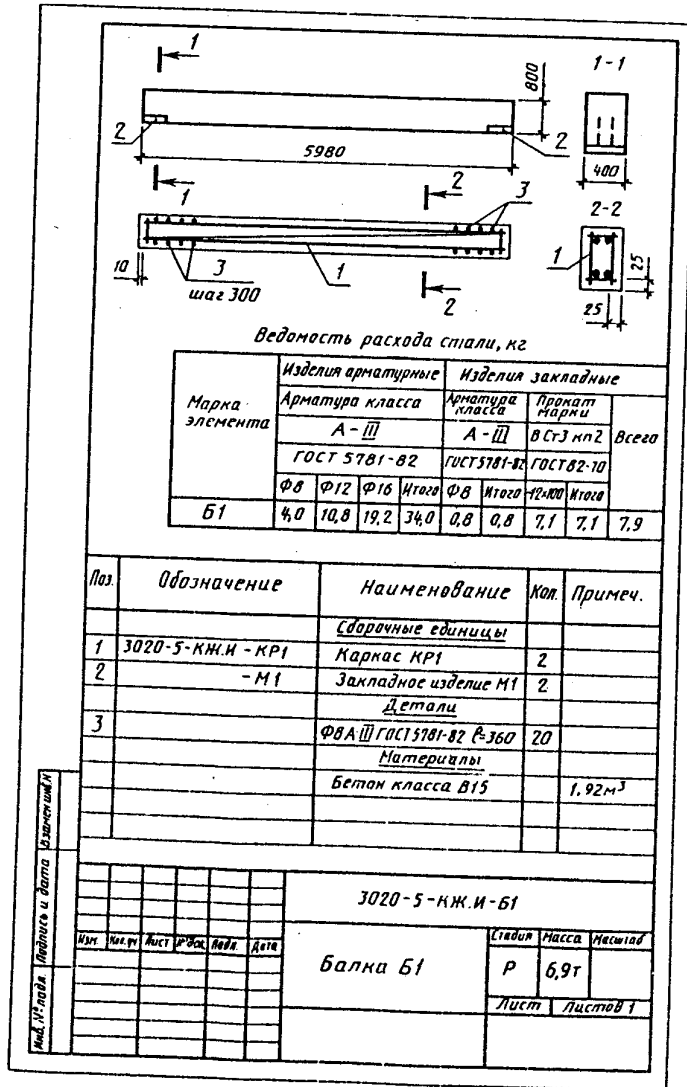 1
1-1
800
2
2
5980
400
1
2
3
2-2
1
10
3
1
шаг 300
2
25
25
Ведомость расхода стали, кг
Марка элемента
Изделия арматурные
Изделия закладные
Арматура класса
Арматура класса
Прокат марки
Всего
А-III
А-III
ВСт3 кп2
ГОСТ 5781-82
ГОСТ5781-82
ГОСТ82-70
Ф8 Ф12 Ф16 Итого Ф8 Итого -12×100 Итого
Б1 4,0 10,8 19,2 34,0 0,8 0,8 7,1 7,1 7,9
Поз. Обозначение Наименование Кол. Примеч.
Сборочные единицы
1 3020-5-КЖ.И-КР1 Каркас КР1 2
2 -М1 Закладное изделие М1 2
Детали
3 Ф8АIII ГОСТ5781-82 ℓ=360 20
Материалы
Бетон класса В15 1,92м³
3020-5-КЖ.И-Б1
Изм. Кол.уч Лист №док. Подп. Дата
Балка Б1
Стадия Масса Масштаб
Р 6,9т
Лист Листов 1
Инв.№подл. Подпись и дата Взамен инв.№